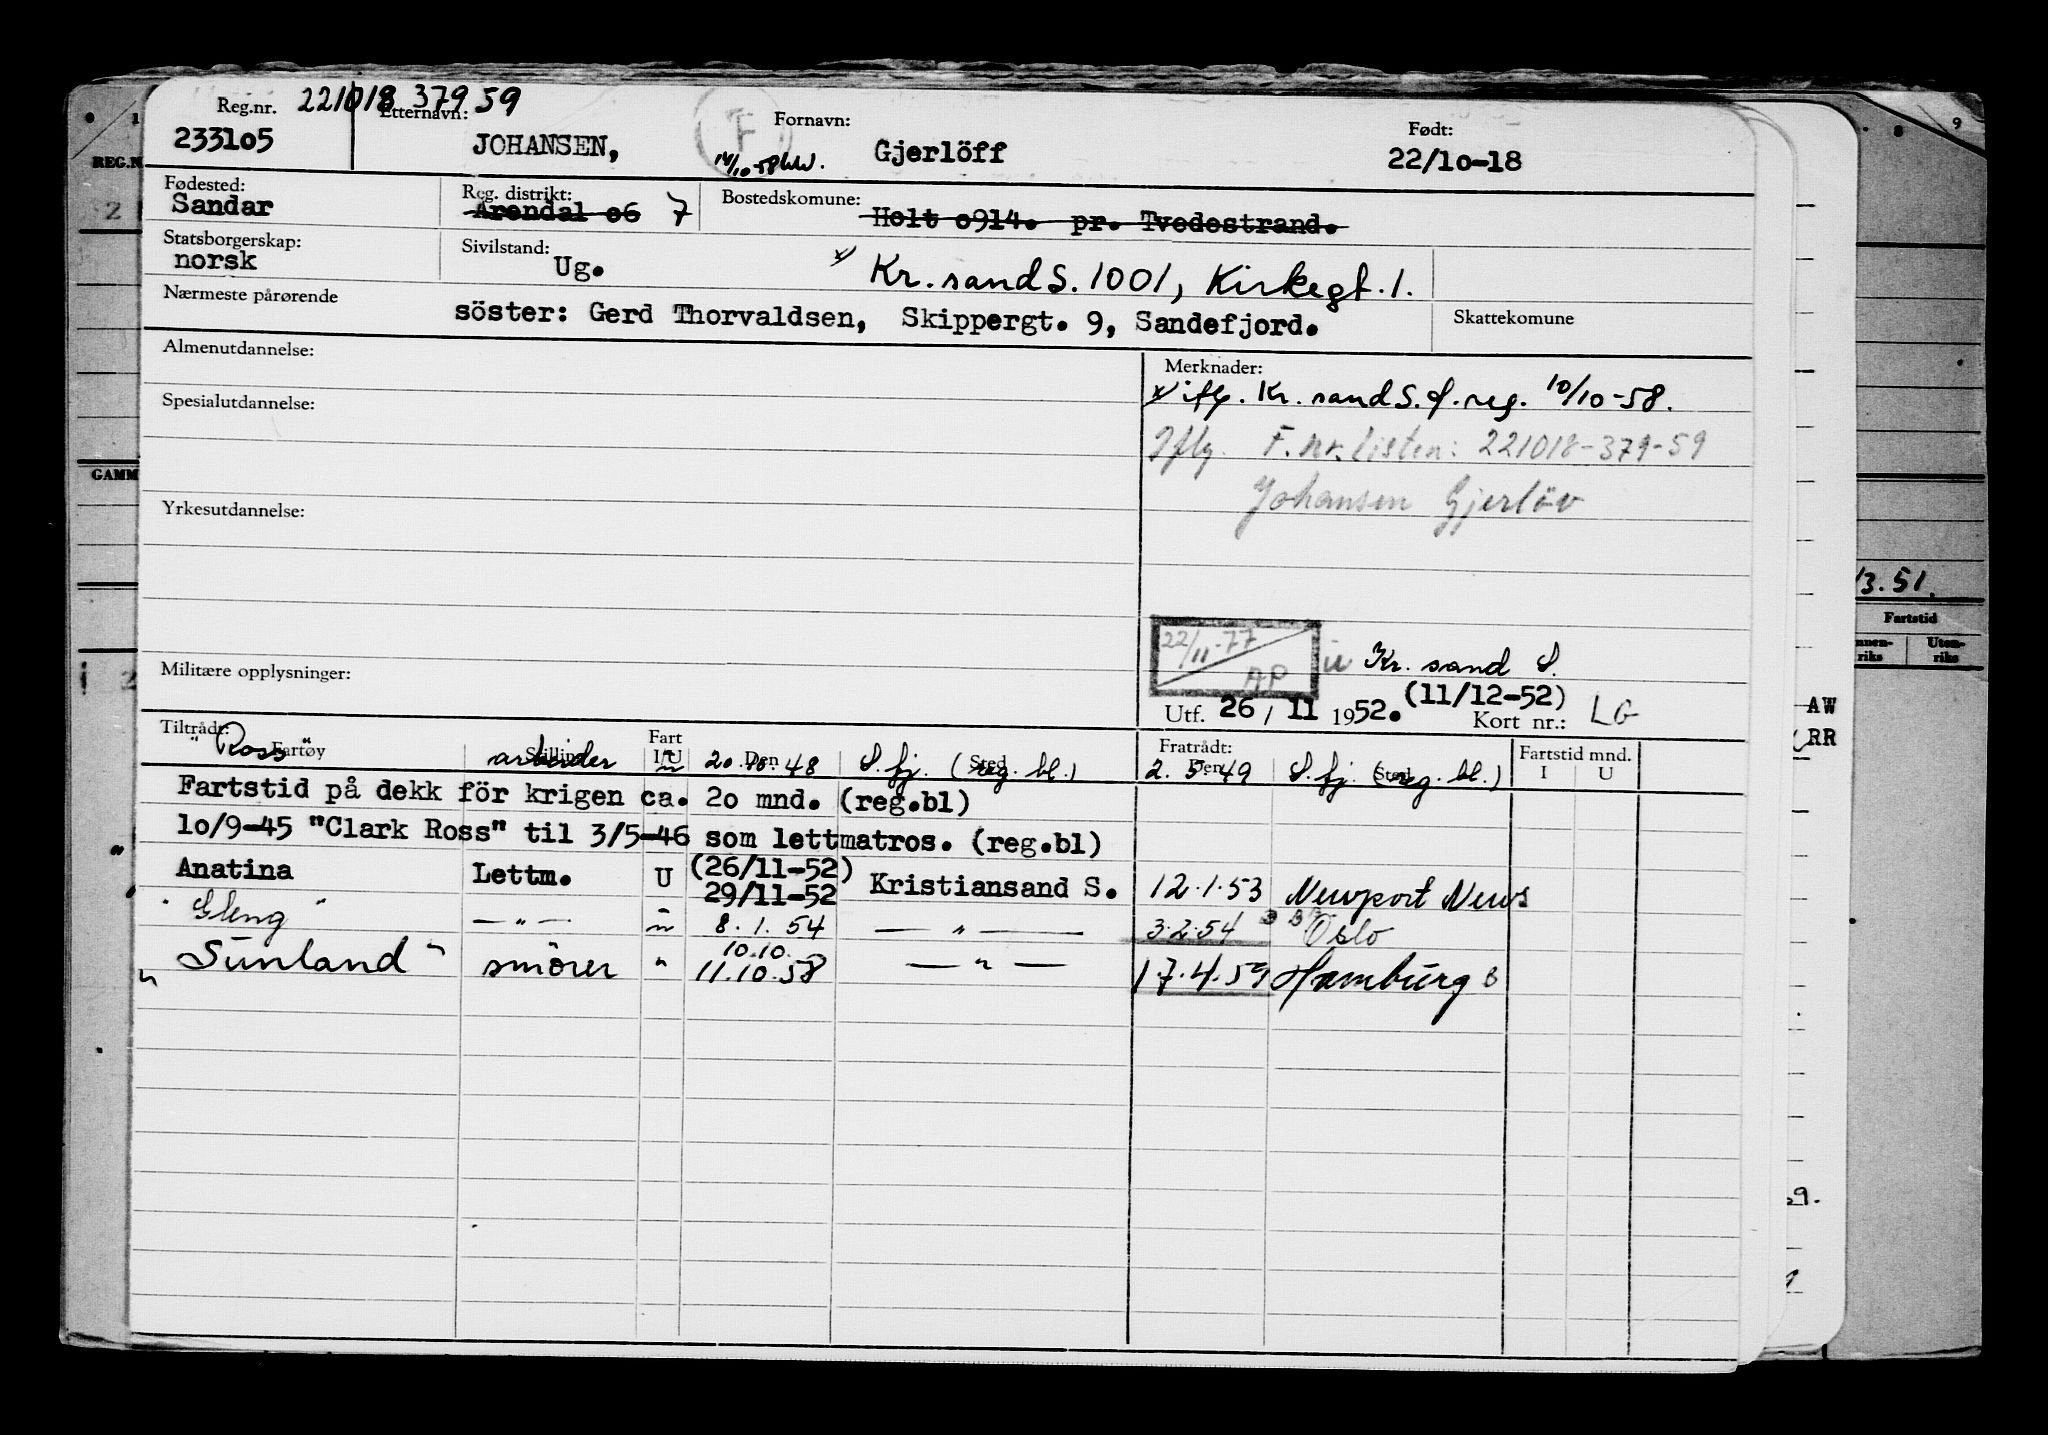 Reg.nr. 221018 379 59 Etternavn: F Fornavn: Født:
233105 JOHANSEN, Gjerlöff 22/10-18
Fødested: Reg. distrikt: Bostedskomune:
Sandar Arendal o6 7 Holt o914. pr. Tvedestrand.
Statsborgerskap: Sivilstand:
norsk Ug. x/ Kr.sand S. 1001, Kirkegt. 1.
Nærmeste pårørende
söster: Gerd Thorvaldsen, Skippergt. 9, Sandefjord. Skattekomune
Almenutdannelse: Merknader:
x/ iflg. Kr. sand S. f. reg. 10/10-58.
Spesialutdannelse:
Iflg. F. nr. listen: 221018-379-59
Johansen Gjerlöv
Yrkesutdannelse:
22/11-77 AP
Militære opplysninger: Kr. sand S.
(11/12-52)
Utf. 26 / 11 1952. Kort nr.: LG
Tiltrådt: Fart Fratrådt: Fartstid mnd.
Fartøy Stilling I/U Den Sted Den Sted I U
"Ross" arbeider " 20.10.48 S.fj. (reg. bl.) 2.5.49 S.fj. (reg. bl.)
Fartstid på dekk för krigen ca. 2o mnd. (reg.bl)
lo/9-45 "Clark Ross" til 3/5-46 som lettmatros. (reg.bl)
Anatina Lettm. U (26/11-52) 29/11-52 Kristiansand S. 12.1.53 Newport News
"Gleng" — " — " 8.1.54 — " — 3.2.54 Oslo
"Sunland" smörer " 10.10. 11.10.58 — " — 17.4.59 Hamburg
REG.N
GAMM
13.51.
Fartstid
nnen-riks Uten-riks
AW
RR
8 9